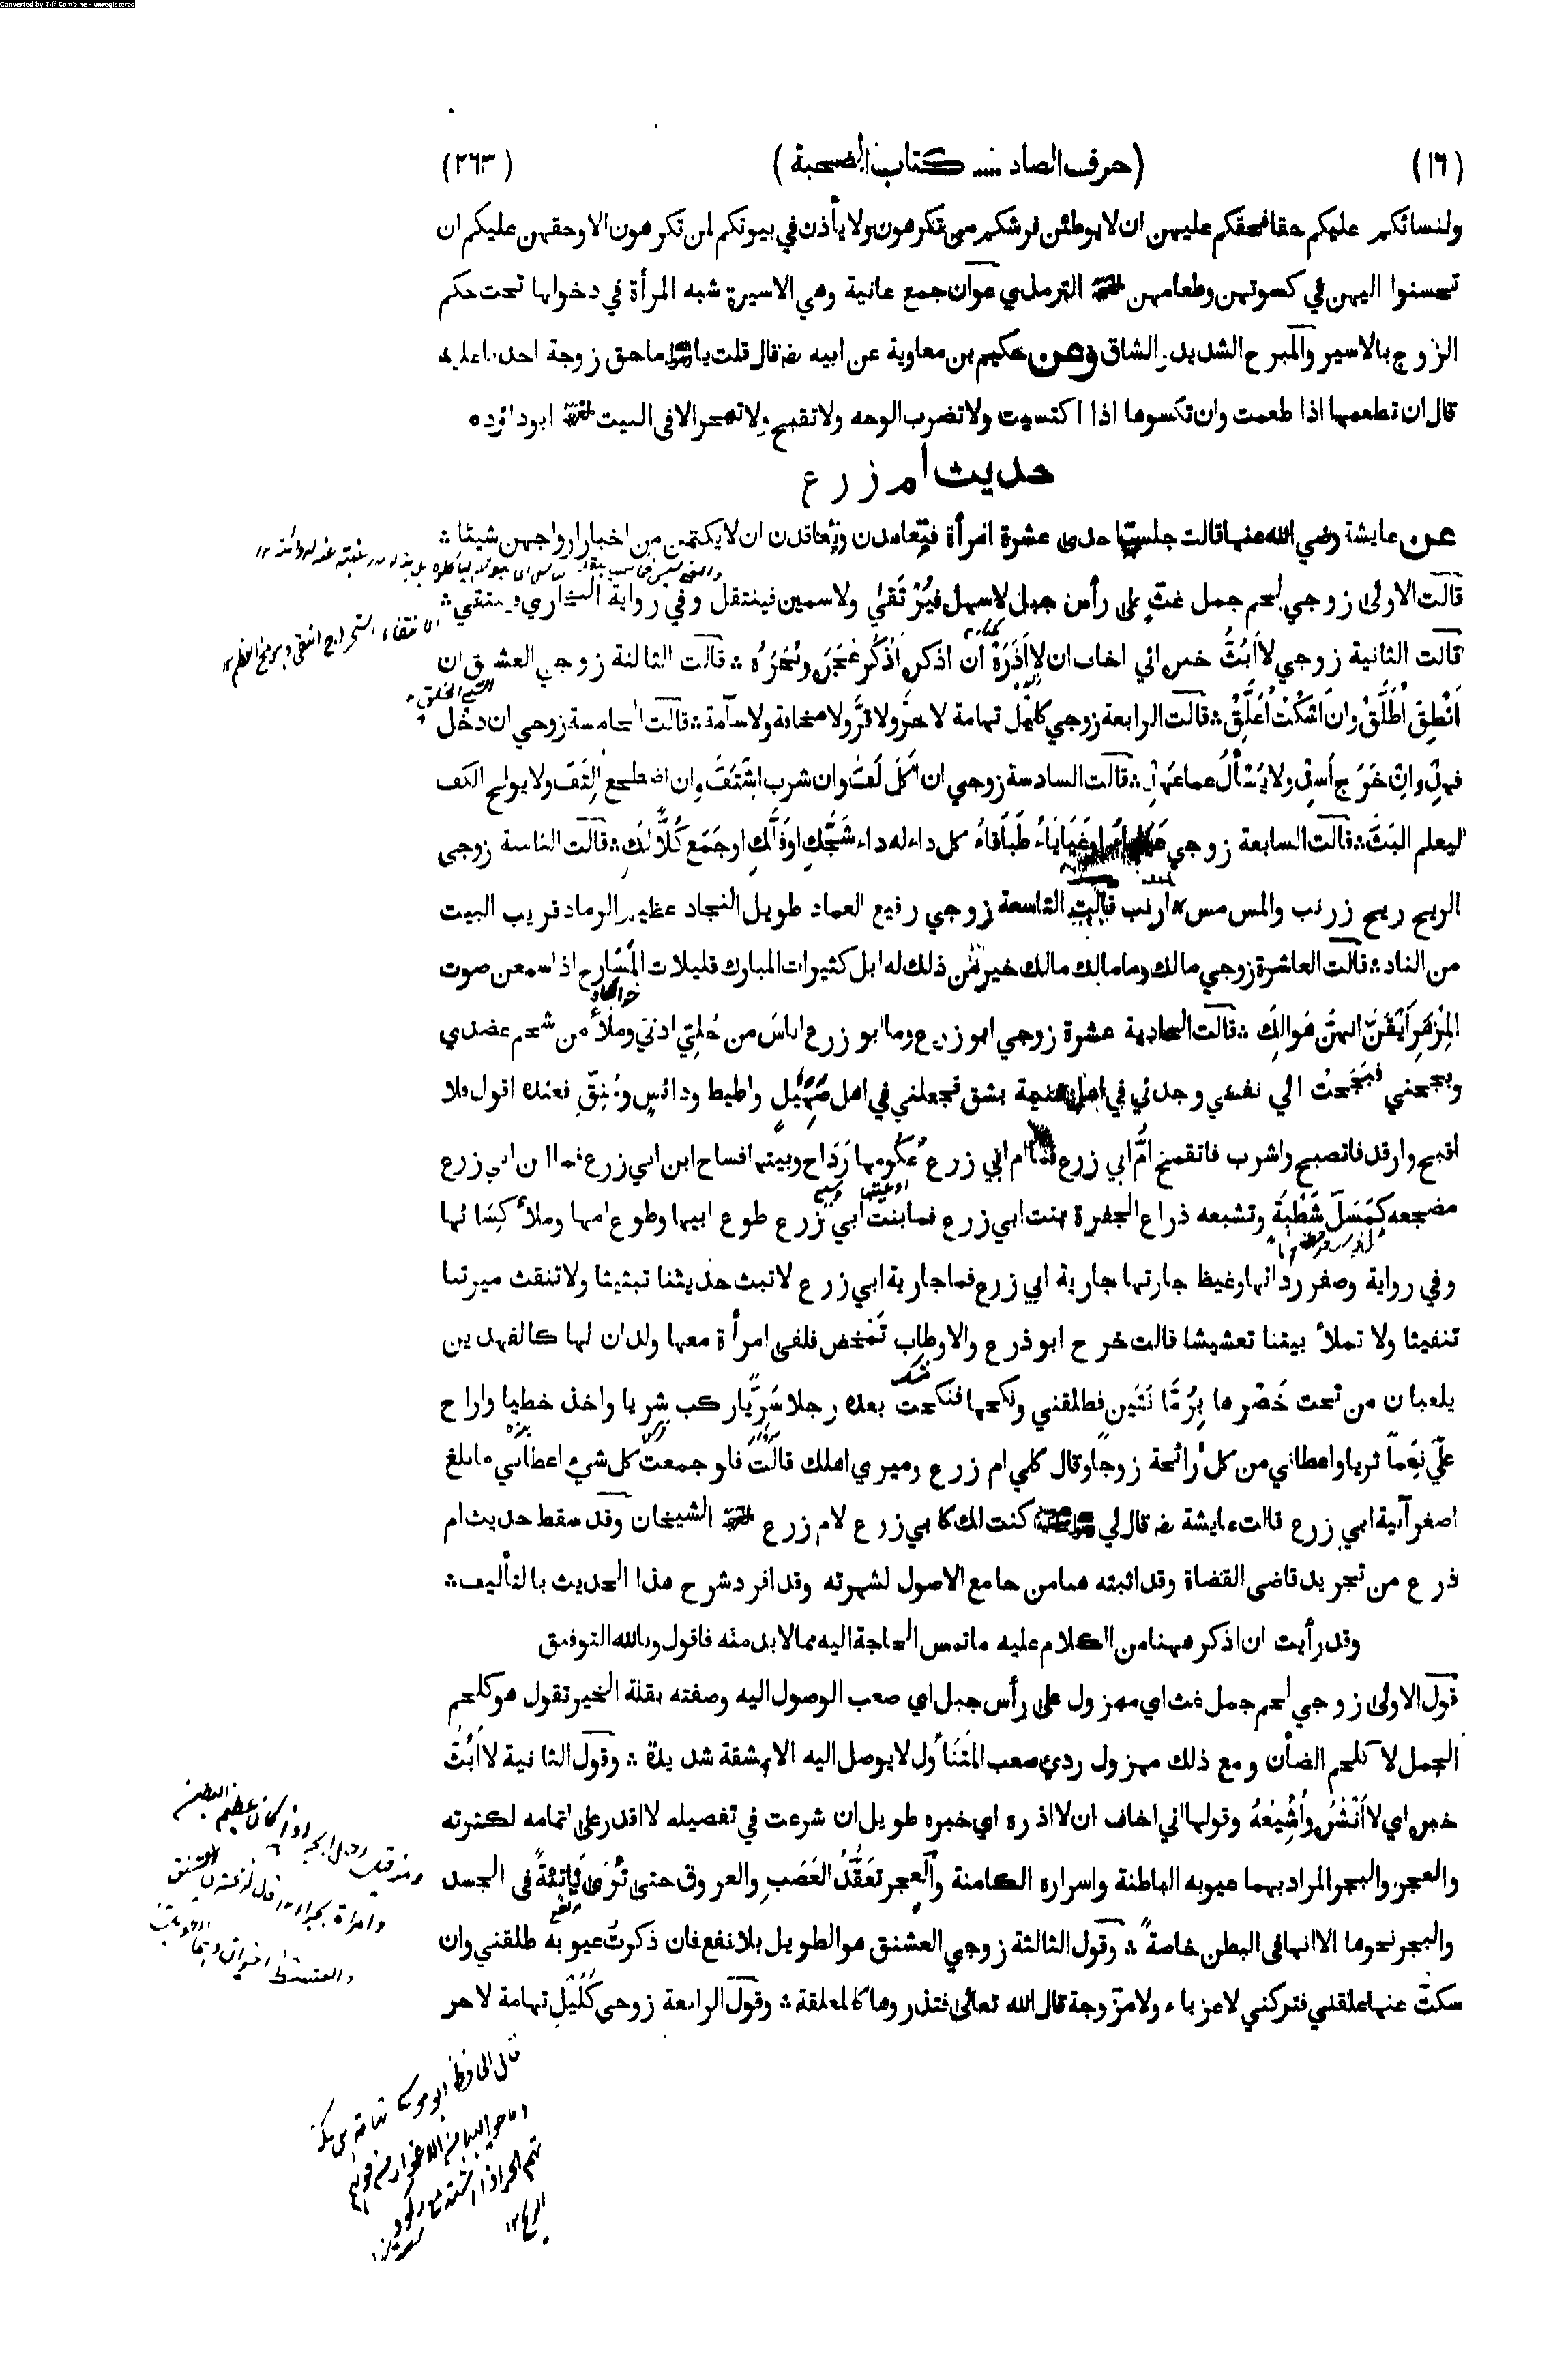 Converted by Tiff Combine - unregistered
(١٦) (حرف الصاد ..... كتاب الصحبة) (٢٦٣)
ولنسائكم عليكم حقا فحقكم عليهن ان لا يوطئن فرشكم من تكرهون ولا يأذن في بيوتكم لمن تكرهون الا وحقهن عليكم ان
تحسنوا اليهن في كسوتهن وطعامهن الترمذي عوان جمع عانية وهي الاسيرة شبه المرأة في دخولها تحت حكم
الزوج بالاسير والمبرح الشديد الشاق وعن حكيم بن معاوية عن ابيه رضـ قال قلت يا رسول ما حق زوجة احدنا عليه
قال ان تطعمها اذا طعمت وان تكسوها اذا اكتسيت ولا تضرب الوجه ولا تقبح ولا تهجر الا في البيت ابو داؤد ٥
حديث ام زرع
عن عايشة رضي الله عنها قالت جلست احدى عشرة امرأة فتعاهدن وتعاقدن ان لا يكتمن من اخبار ازواجهن شيئا ؞
قالت الاولى زوجي لحم جمل غث على رأس جبل لا سهل فيُرْتَقىٰ ولا سمين فينتقل وفي رواية البخاري فينتقي ؞
الانتقاء استخراج النقي وهو مخ العظم ١٢
قالت الثانية زوجي لا اَبُثُّ خبره اني اخاف ان لا اَذَرَهُ ان اذكره اَذْكُر عُجَرَه وبُجَرَهُ ؞ قالت الثالثة زوجي العشنق ان
السيئ الخلق
اَنْطِقْ اُطَلَّقْ وان اَسْكُتْ اُعَلَّقْ ؞ قالت الرابعة زوجي كليل تهامة لا حرٌّ ولا قرٌّ ولا مخافة ولا سآمة ؞ قالت الخامسة زوجي ان دخل
فهِدَ وانْ خَرَجَ أَسِدَ ولا يُسْأَلُ عما عَهِدَ ؞ قالت السادسة زوجي ان اَكَلَ لَفَّ وان شرب اشْتَفَّ وان اضطجع اِلْتَفَّ ولا يولج الكف
ليعلم البَثَّ ؞ قالت السابعة زوجي عَيَايَاءُ او غَيَايَاءُ طَبَاقَاءُ كل داء له داء شَجَّكِ او فَلَّكِ او جَمَع كُلًّا لَكِ ؞ قالت الثامنة زوجي
الريح ريح زرنب والمس مس ارنب قالت التاسعة زوجي رفيع العماد طويل النجاد عظيم الرماد قريب البيت
من الناد ؞ قالت العاشرة زوجي مالك وما مالك مالك خير من ذلك له ابل كثيرات المبارك قليلات المَسَارح اذا سمعن صوت
المِزْهَرِ اَيْقَنَّ انهنّ هَوالِكُ ؞ قالت الحادية عشرة زوجي ابو زرع وما ابو زرع اناسَ من حُلِيّ اذنيّ وملأ من شحم عضدي
وبجحني فبَجَحتْ الي نفسي وجدني في اهل غنيمة بشق فجعلني في اهل صَهِيلٍ واطيط ودائسٍ ومُنِقّ فعنده اقول فلا
اقبح وارقد فاتصبح واشرب فاتقمح اُمُّ ابي زرع فما ام ابي زرع عُكومها رَدَاح وبيتها فساح ابن ابي زرع فما ابن ابي زرع
مضجعه كمَسَلّ شَطْبَةٍ وتشبعه ذراع الجفرة بنت ابي زرع فما بنت ابي زرع طوع ابيها وطوع امها وملأ كِسَائها
وفي رواية وصفر ردائها وغيظ جارتها جارية ابي زرع فما جارية ابي زرع لا تبث حديثنا تبثيثا ولا تنقث ميرتنا
تنقيثا ولا تملأ بيتنا تعشيشا قالت خرج ابو ذرع والاوطاب تَمْخض فلقى امرأة معها ولدان لها كالفهدين
يلعبان من تحت خَصْرها بِرُمَّانَتَين فطلقني ونكحها فنكحت بعده رجلا سَرِيًّا ركب شريا واخذ خطيا واراح
عليَّ نِعَماً ثريا واعطاني من كل رائحة زوجا وقال كلي ام زرع وميري اهلك قالت فلو جمعت كل شيء اعطاني ما بلغ
اصغر آنية ابي زرع قالت عايشة رضـ قال لي كنت لك كابي زرع لام زرع الشيخان وقد سقط حديث ام
ذرع من تجريد قاضى القضاة وقد اثبته هنا من جامع الاصول لشهرته وقد افرد شرح هذا الحديث بالتأليف ؞
وقد رأيت ان اذكر ههنا من الكلام عليه ما تمس الحاجة اليه مما لا بد منه فاقول وبالله التوفيق
قول الاولى زوجي لحم جمل غث اي مهزول على رأس جبل اي صعب الوصول اليه وصفته بقلة الخير تقول هو كلحم
الجمل لا كلحم الضأن ومع ذلك مهزول رديّ صعب المتَنَاوُل لا يوصل اليه الا بمشقة شديدة ؞ وقول الثانية لا اَبُثُّ
خبره اي لا اَنْشُرُه واُشِيْعُهُ وقولها اني اخاف ان لا اذره اي خبره طويل ان شرعت في تفصيله لا اقدر على اتمامه لكثرته
والعجر والبجر المراد بهما عيوبه الباطنة واسراره الكامنة والعجر تَعَقُّدُ العَصَبِ والعروق حتى تُرَىٰ نَاتِئةً فى الجسد
والبجر نحوها الا انها فى البطن خاصةً ؞ وقول الثالثة زوجي العشنق هو الطويل بلا نفع فان ذكرتُ عيوبه طلقني وان
سكتّ عنها علقني فتركني لا عزباء ولا مزوجة قال الله تعالى فتذروها كالمعلقة ؞ وقول الرابعة زوجي كلَيْلِ تهامة لا حر
قال الحافظ ابو موسى